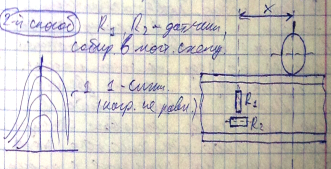 2-й способ
R1, R2 - датчики,
собир в мост. схему
1 1-сим.
(нагр. не равн.)
x
R1
R2